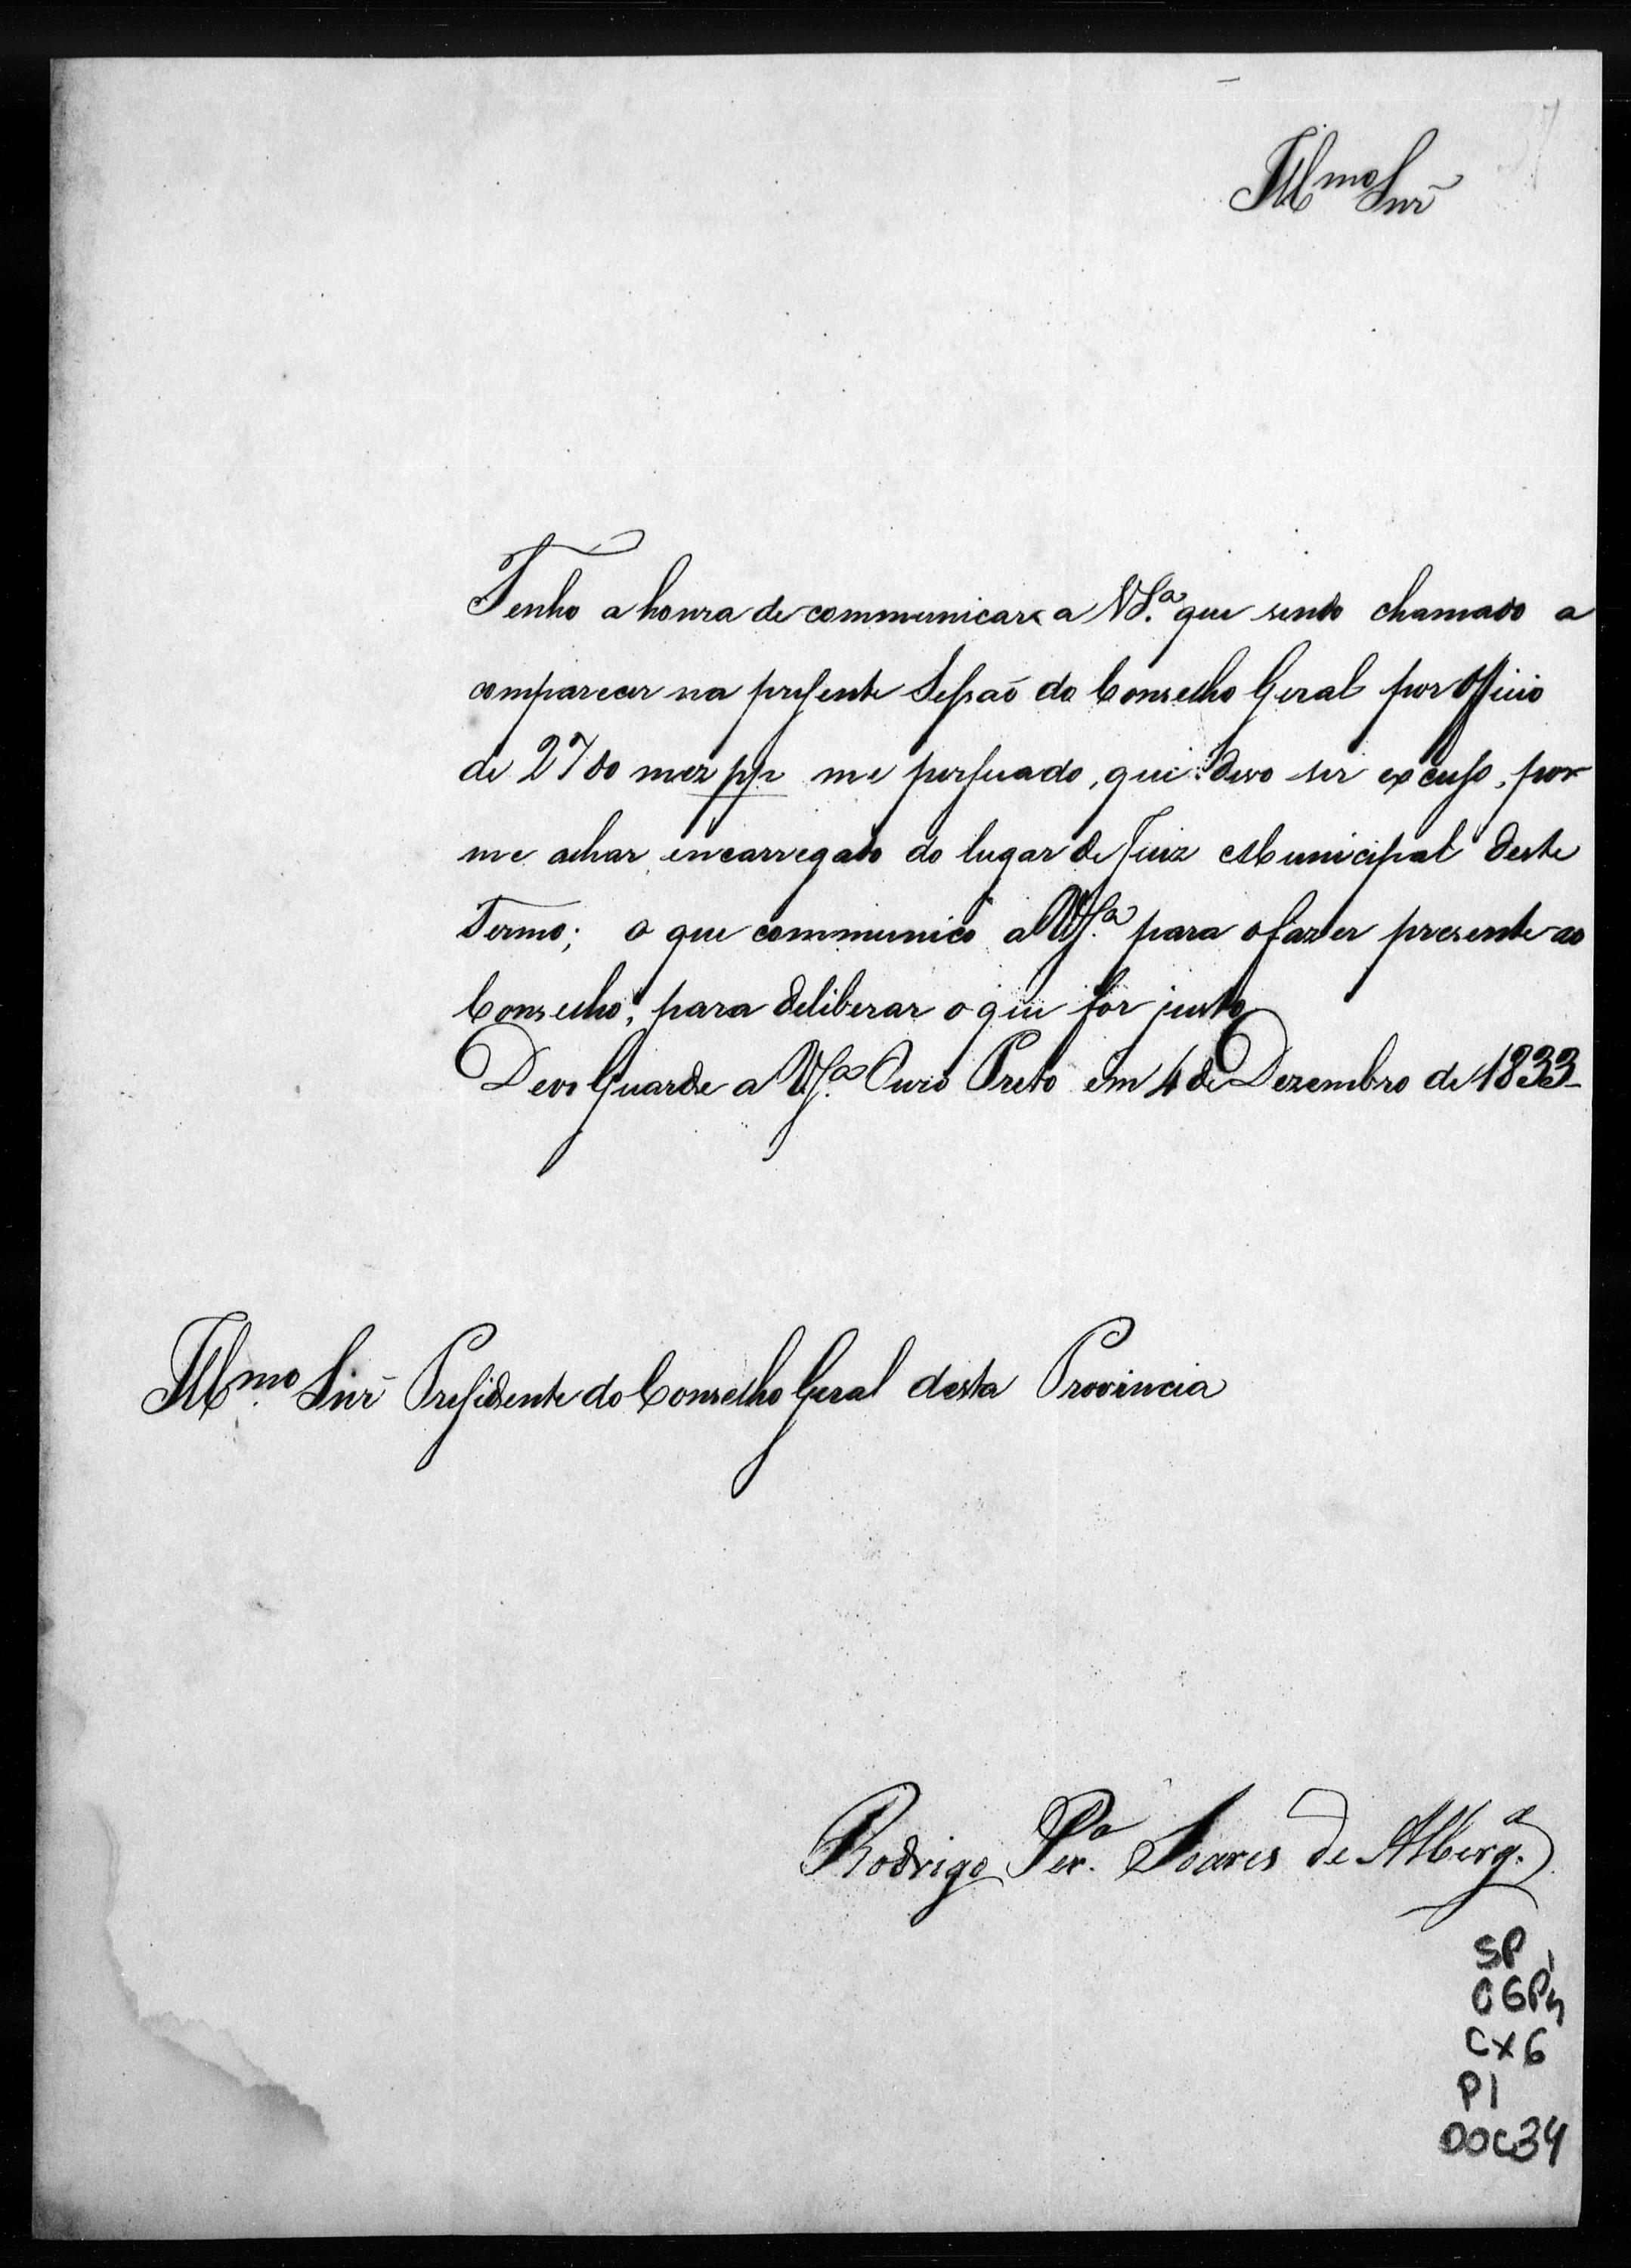 Illmo Snr̃
Tenho a honra de communicar a V S.ª que sendo chamado a
comparecer na presente Sessaõ do Conselho Geral por Officio
de 27 do mez pp. me persuado, que devo ser excuso, por
me achar encarregado do lugar de Juiz Municipal deste
Termo; o que communico a V S.ª para o fazer presente ao
Conselho, para deliberar o que for justo
Deos Guarde a V S.ª Ouro Preto em 4 de Dezembro de 1833
Illmo. Snr̃ Presidente do Conselho Geral desta Provincia
Rodrigo Per.ª Soares de Alberg.ª
SP
CGP1
CX6
P1
DOC34